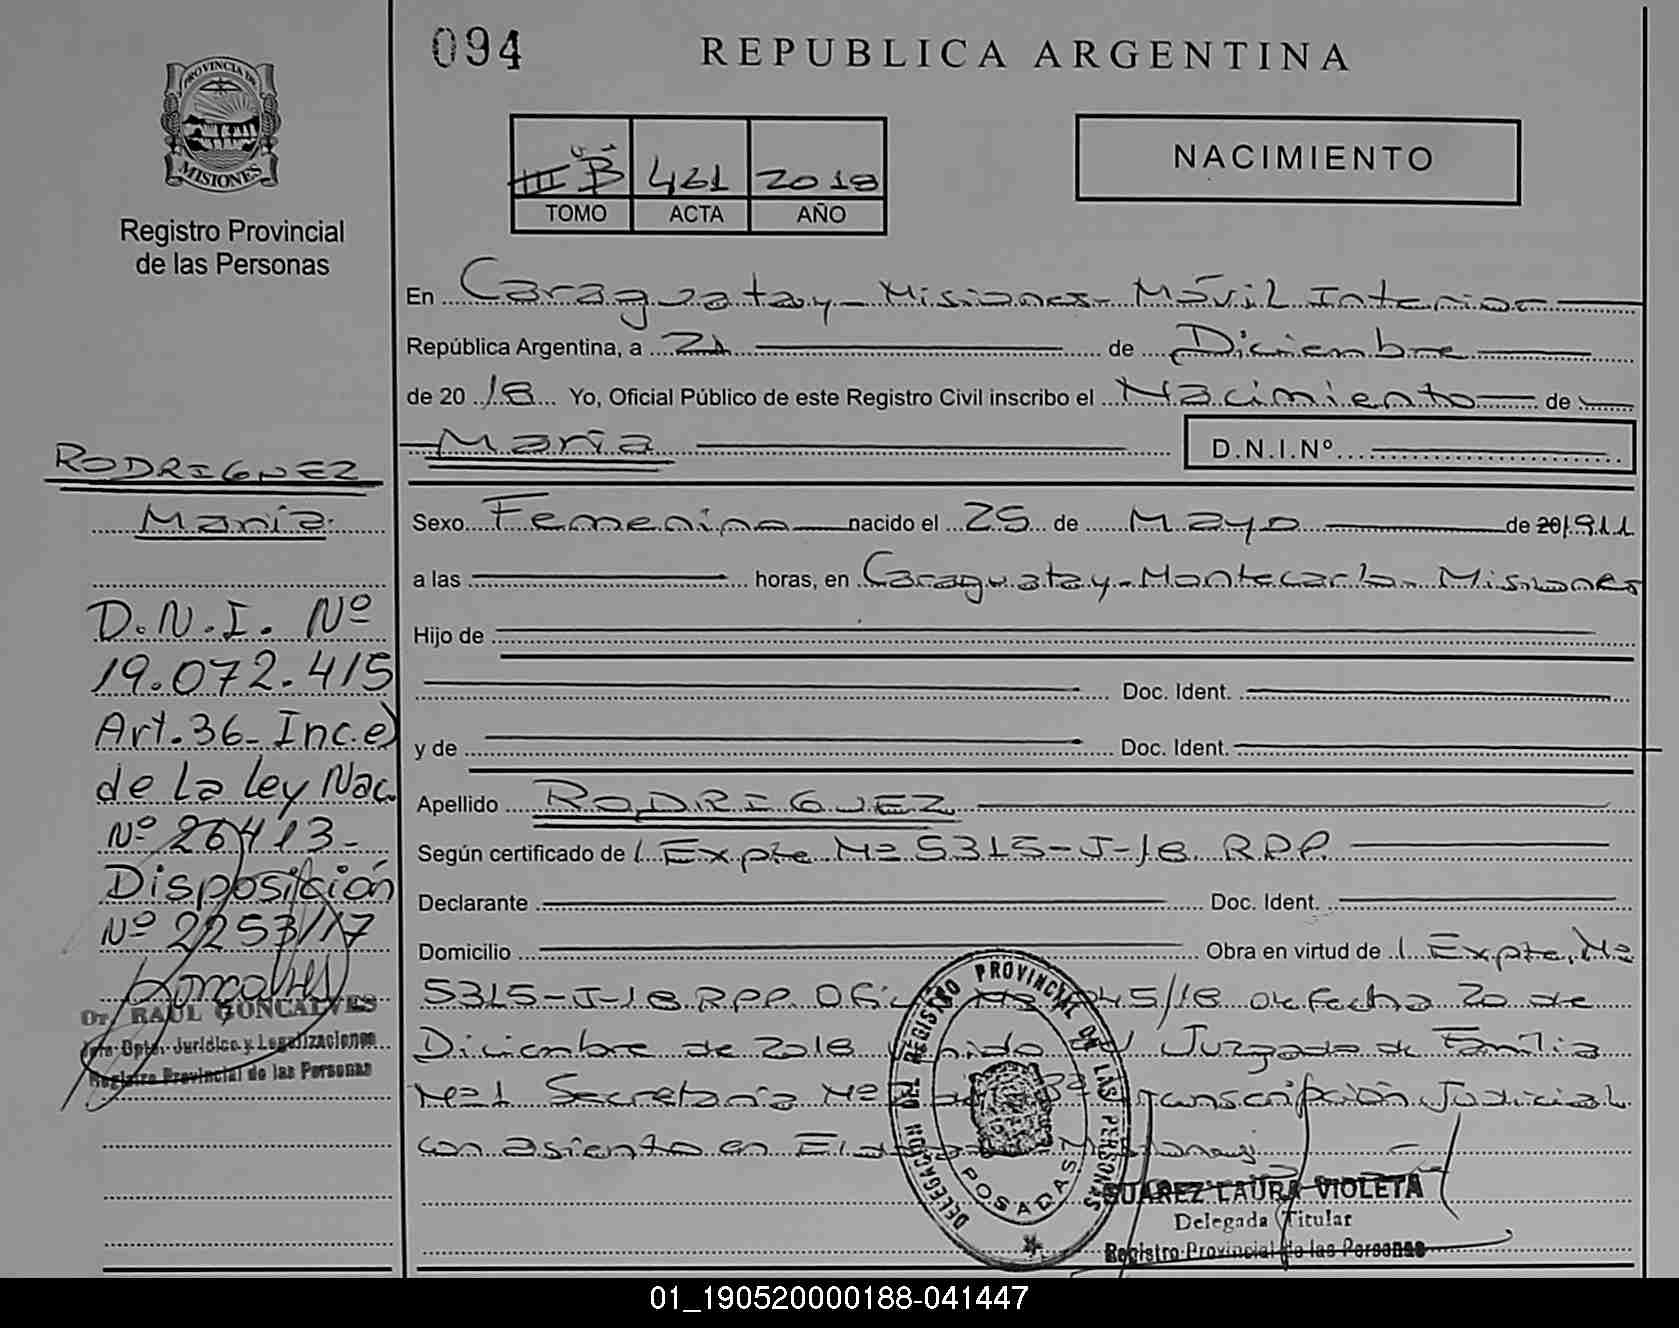 094
REPUBLICA ARGENTINA
PROVINCIA DE
MISIONES
Registro Provincial
de las Personas
III B 461 2018
TOMO ACTA AÑO
NACIMIENTO
En Caraguatay - Misiones - Móvil Interior
República Argentina, a 21 de Diciembre
de 2018 Yo, Oficial Público de este Registro Civil inscribo el Nacimiento de
María D.N.I.Nº
Sexo Femenino nacido el 25 de Mayo de 20 1911
a las horas, en Caraguatay - Montecarlo - Misiones
Hijo de
Doc. Ident.
y de Doc. Ident.
Apellido RODRIGUEZ
Según certificado de Expte Nº 5315-J-18 R.P.P.
Declarante Doc. Ident.
Domicilio Obra en virtud de Expte. Nº
5315-J-18 R.P.P. de fecha 20 de
Diciembre de 2018 Juzgado de Familia
Nº 1 Secretaría Nº Transcripción Judicial
con asiento en
RODRIGUEZ
María
D.N.I. Nº
19.072.415
Art. 36 - Inc. e)
de la ley Nac.
Nº 26413 -
Disposición
Nº 2253/17
Goncalves
Dr. RAUL GONCALVES
Jefe Dpto. Jurídico y Legalizaciones
Registro Provincial de las Personas
DELEGACION DEL REGISTRO PROVINCIAL DE LAS PERSONAS
POSADAS
SUAREZ LAURA VIOLETA
Delegada Titular
Registro Provincial de las Personas
01_190520000188-041447